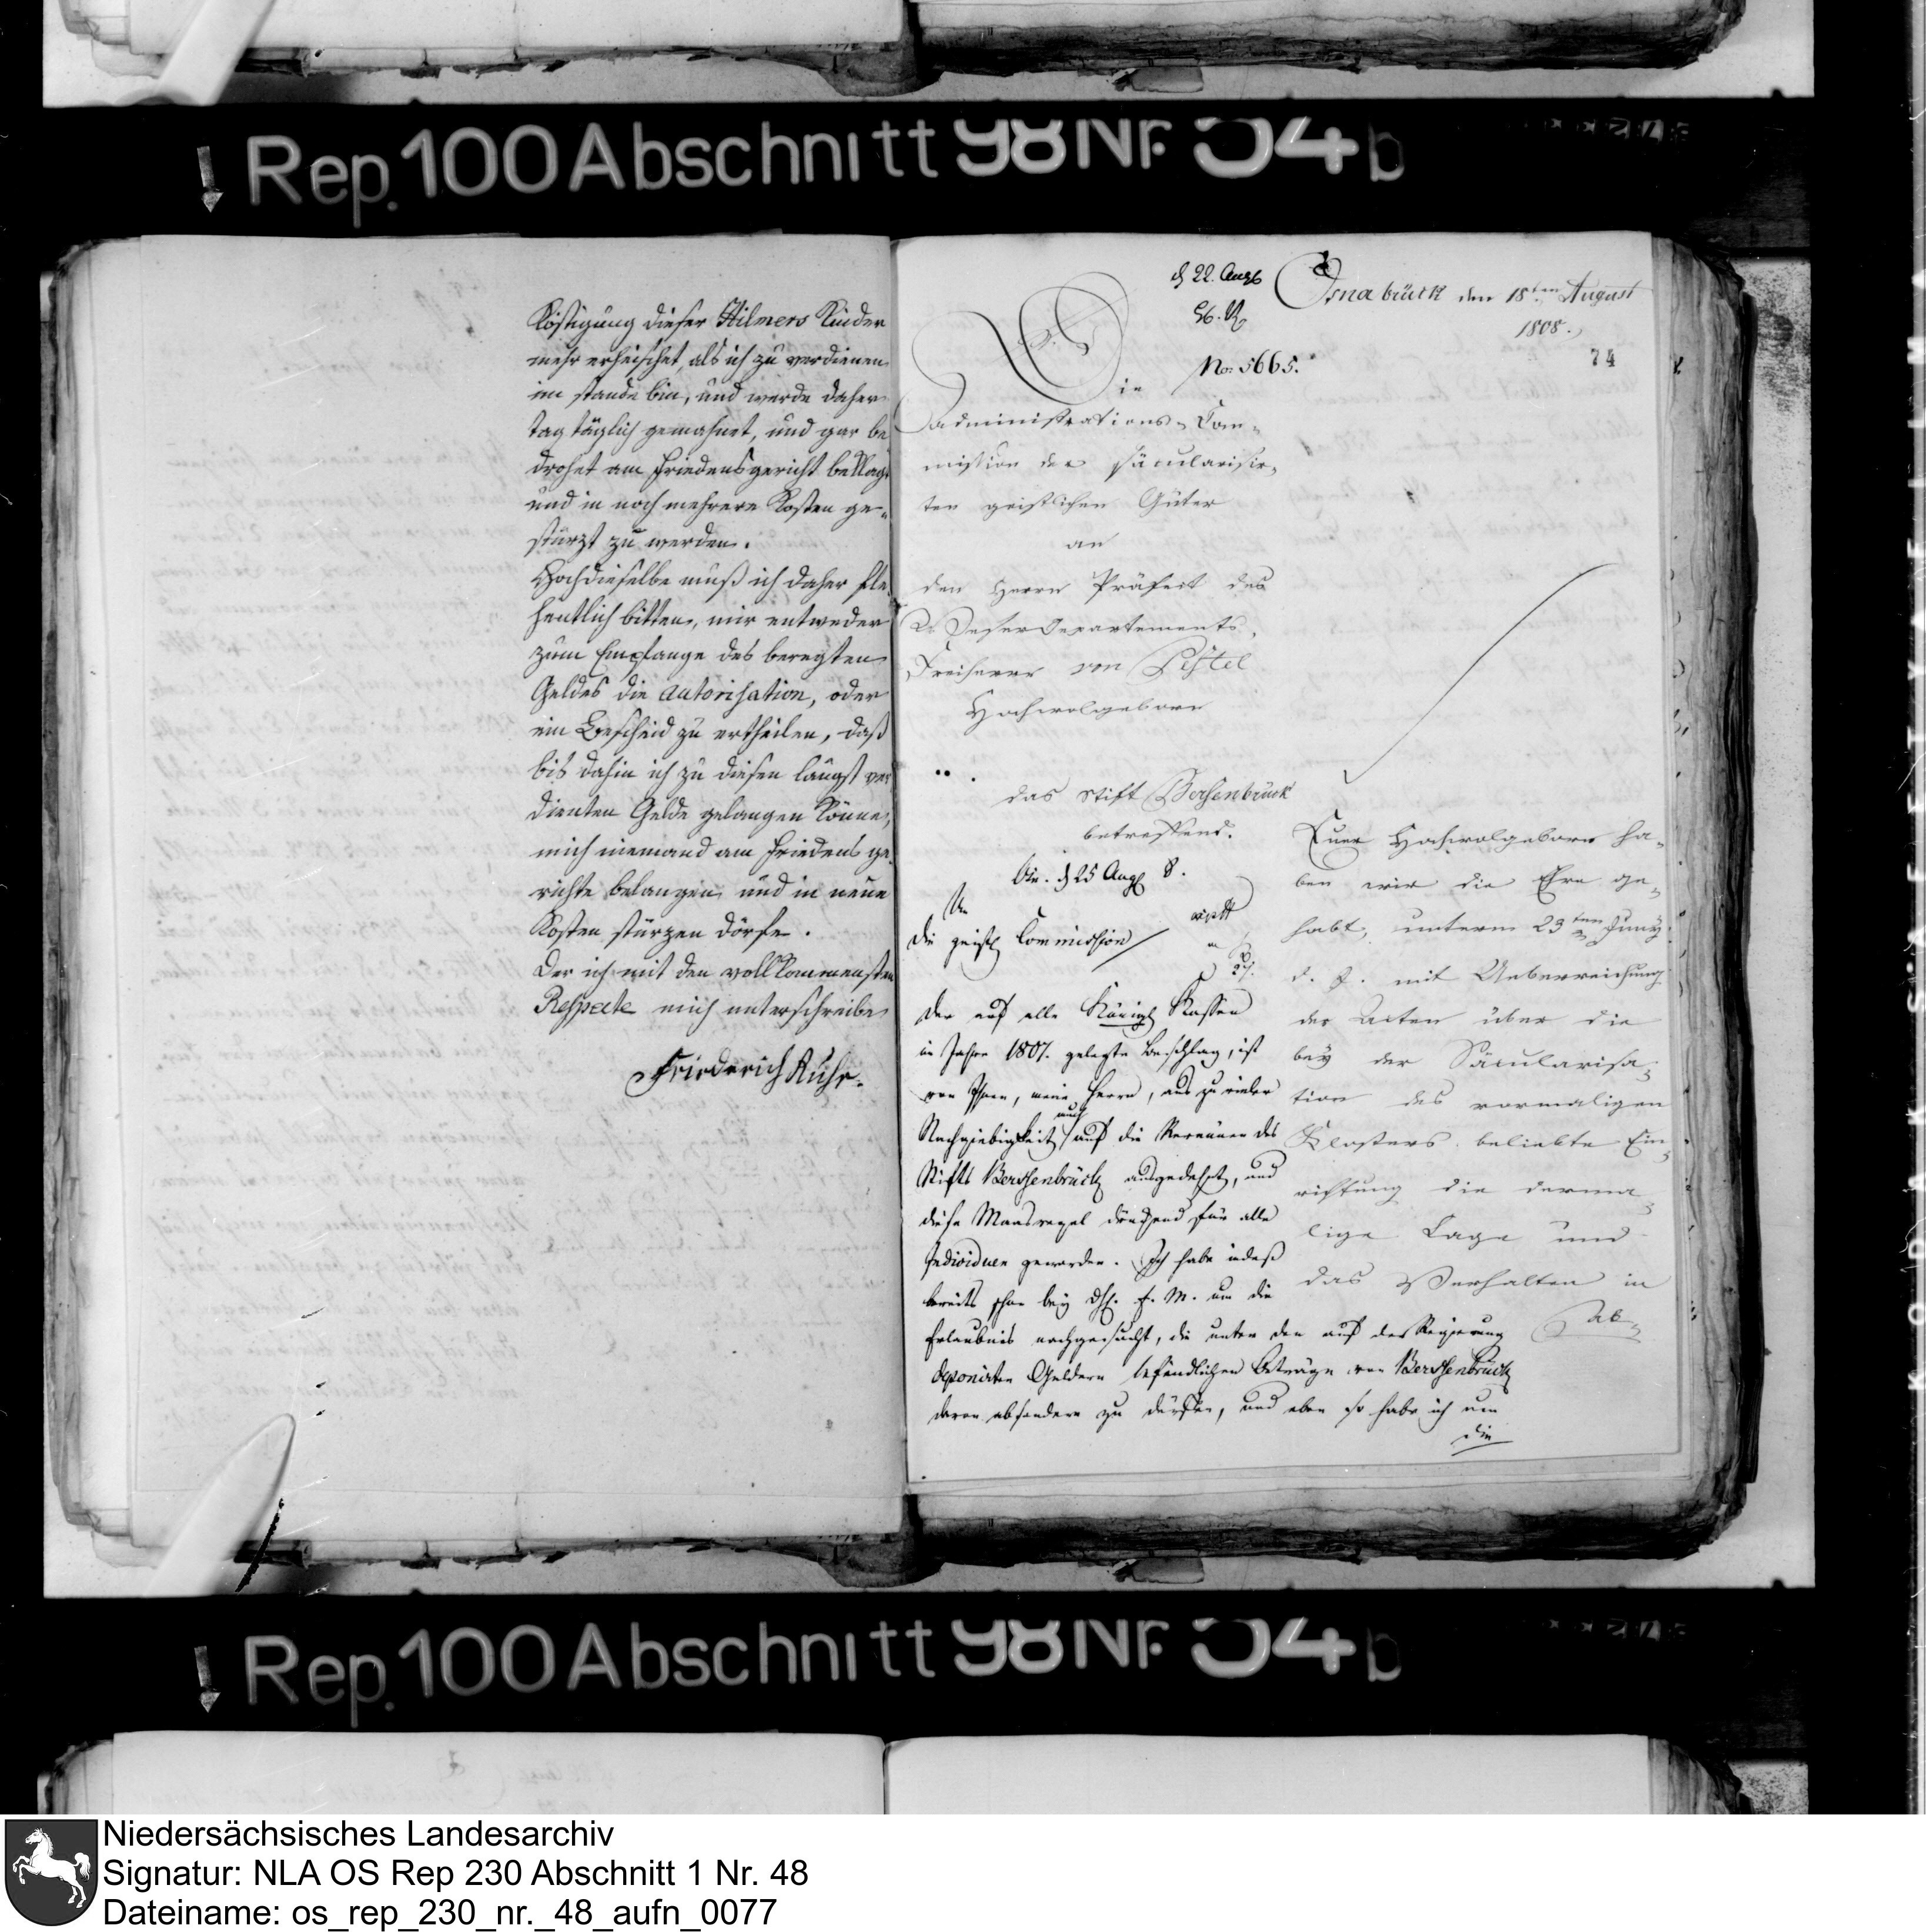 Rep. 100 Abschnitt 98 Nr. 54 b
Köstigung dieser Hilmers Kinder
mehr erheischet, als ich zu verdienen
im stande bin, und werde daher
tag täglich gemahnet, und gar be
drohet am Friedensgericht beklag
und in noch mehrere Kosten ge-
stürzt zu werden.
Hochdieselbe muß ich daher fle
hentlich bitten, mir entweder
zum Empfange des beregten
Geldes die autorisation, oder
ein Bescheid zu ertheilen, daß
bis dahin ich zu diesen längst ver
dienten Gelde gelangen könne,
mich niemand am Friedens ge-
richte belangen und in neue
Kosten stürzen dörfe.
Der ich mit den vollkommensten
Respecte mich unterschreibe
Friederich Ruhr.
Osnabrück den 18ten August
1808.
74
22. Aug
No: 5665.
Die
Administrations-Com-
mission der säcularisir-
ten geistlichen Güter
an
den Herrn Präfect des
Weser Departements,
Freiherrn von Pestel
Hochwolgeborn
das Stift Bersenbrück
betreffend.
25 Aug 8.
An
die geistl Commission
Der auf alle Königl Kassen
im Jahre 1807. gelegte Beschlag, ist
von Ihnen, meine Herrn, aus zu vieler
auch
Nachgiebigkeit auf die Revenüen des
Stifts Berssenbrück ausgedehnt, und
diese Maasregel drückend für alle
Individuen geworden. Ich habe indeß
bereits schon bey F. M. um die
Erlaubnis nachgesucht, die unter den auf der Regierung
deponirten Geldern befindlichen Beträge von Berssenbrück
davon absondern zu dürfen, und eben so habe ich um
die
Euer Hochwolgeborn ha-
ben wir die Ehre ge-
habt, unterm 23ten Juny
d. J. mit Ueberreichung
der Acten über die
bey der Säcularisa-
tion des vormaligen
Klosters beliebte Ein-
richtung die derma-
lige Lage und
das Verhalten in
Ab-
Rep. 100 Abschnitt 98 Nr. 54 b
Niedersächsisches Landesarchiv
Signatur: NLA OS Rep 230 Abschnitt 1 Nr. 48
Dateiname: os_rep_230_nr._48_aufn_0077